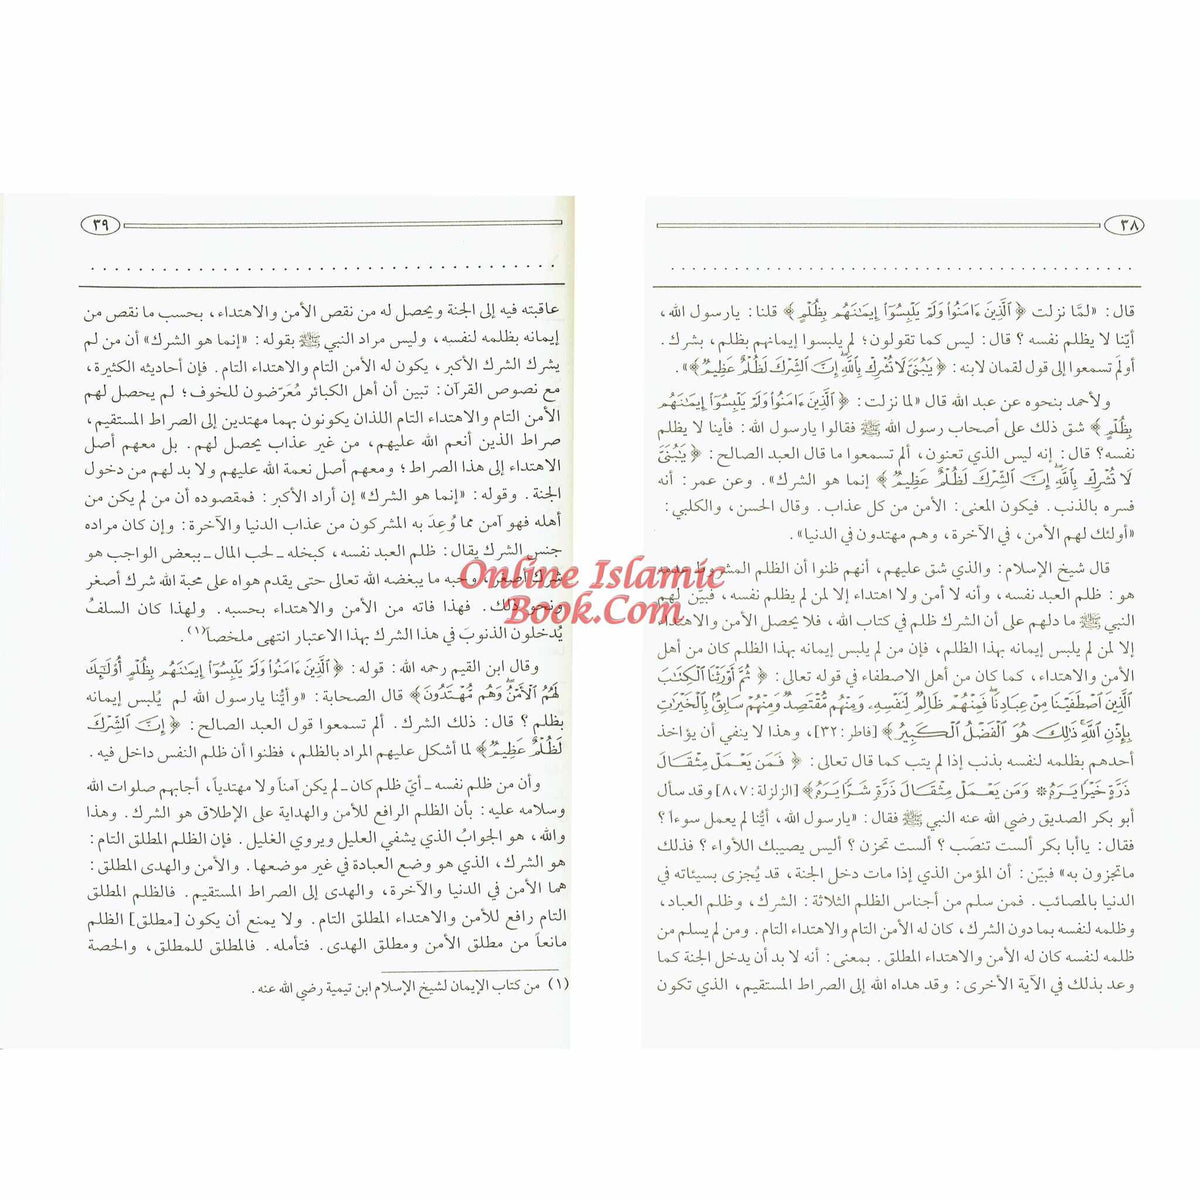 ٣٨
قال: «لمَّا نزلت ﴿ ٱلَّذِينَ ءَامَنُوا۟ وَلَمْ يَلْبِسُوٓا۟ إِيمَـٰنَهُم بِظُلْمٍ ﴾ قلنا: يارسول الله،
أيّنا لا يظلم نفسه؟ قال: ليس كما تقولون؛ لم يلبسوا إيمانهم بظلم، بشرك.
أولَم تسمعوا إلى قول لقمان لابنه: ﴿ يَـٰبُنَىَّ لَا تُشْرِكْ بِٱللَّهِ إِنَّ ٱلشِّرْكَ لَظُلْمٌ عَظِيمٌ ﴾».
ولأحمد بنحوه عن عبد الله قال «لما نزلت: ﴿ ٱلَّذِينَ ءَامَنُوا۟ وَلَمْ يَلْبِسُوٓا۟ إِيمَـٰنَهُم
بِظُلْمٍ ﴾ شق ذلك على أصحاب رسول الله ﷺ فقالوا يارسول الله: فأينا لا يظلم
نفسه؟ قال: إنه ليس الذي تعنون، ألم تسمعوا ما قال العبد الصالح: ﴿ يَـٰبُنَىَّ
لَا تُشْرِكْ بِٱللَّهِ إِنَّ ٱلشِّرْكَ لَظُلْمٌ عَظِيمٌ ﴾ إنما هو الشرك». وعن عمر: أنه
فسره بالذنب. فيكون المعنى: الأمن من كل عذاب. وقال الحسن، والكلبي:
«أولئك لهم الأمن، في الآخرة، وهم مهتدون في الدنيا».
قال شيخ الإسلام: والذي شق عليهم، أنهم ظنوا أن الظلم المشروط
هو: ظلم العبد نفسه، وأنه لا أمن ولا اهتداء إلا لمن لم يظلم نفسه، فبيّن لهم
النبي ﷺ ما دلهم على أن الشرك ظلم في كتاب الله، فلا يحصل الأمن والاهتداء
إلا لمن لم يلبس إيمانه بهذا الظلم، فإن من لم يلبس إيمانه بهذا الظلم كان من أهل
الأمن والاهتداء، كما كان من أهل الاصطفاء في قوله تعالى: ﴿ ثُمَّ أَوْرَثْنَا ٱلْكِتَـٰبَ
ٱلَّذِينَ ٱصْطَفَيْنَا مِنْ عِبَادِنَا فَمِنْهُمْ ظَالِمٌ لِّنَفْسِهِۦ وَمِنْهُم مُّقْتَصِدٌ وَمِنْهُمْ سَابِقٌۢ بِٱلْخَيْرَٰتِ
بِإِذْنِ ٱللَّهِ ذَٰلِكَ هُوَ ٱلْفَضْلُ ٱلْكَبِيرُ ﴾ [فاطر: ٣٢]، وهذا لا ينفي أن يؤاخذ
أحدهم بظلمه لنفسه بذنب إذا لم يتب كما قال تعالى: ﴿ فَمَن يَعْمَلْ مِثْقَالَ
ذَرَّةٍ خَيْرًا يَرَهُۥ * وَمَن يَعْمَلْ مِثْقَالَ ذَرَّةٍ شَرًّا يَرَهُۥ ﴾ [الزلزلة: ٧، ٨] وقد سأل
أبو بكر الصديق رضي الله عنه النبي ﷺ فقال: «يارسول الله، أيُّنا لم يعمل سوءاً؟
فقال: ياأبا بكر ألست تنصَب؟ ألست تحزن؟ أليس يصيبك اللأواء؟ فذلك
ماتجزون به» فبيّن: أن المؤمن الذي إذا مات دخل الجنة، قد يُجزى بسيئاته في
الدنيا بالمصائب. فمن سلم من أجناس الظلم الثلاثة: الشرك، وظلم العباد،
وظلمه لنفسه بما دون الشرك، كان له الأمن التام والاهتداء التام. ومن لم يسلم من
ظلمه لنفسه كان له الأمن والاهتداء المطلق. بمعنى: أنه لا بد أن يدخل الجنة كما
وعد بذلك في الآية الأخرى: وقد هداه الله إلى الصراط المستقيم، الذي تكون
٣٩
عاقبته فيه إلى الجنة ويحصل له من نقص الأمن والاهتداء، بحسب ما نقص من
إيمانه بظلمه لنفسه، وليس مراد النبي ﷺ بقوله: «إنما هو الشرك» أن من لم
يشرك الشرك الأكبر، يكون له الأمن التام والاهتداء التام. فإن أحاديثه الكثيرة،
مع نصوص القرآن: تبين أن أهل الكبائر مُعَرّضون للخوف؛ لم يحصل لهم
الأمن التام والاهتداء التام اللذان يكونون بهما مهتدين إلى الصراط المستقيم،
صراط الذين أنعم الله عليهم، من غير عذاب يحصل لهم. بل معهم أصل
الاهتداء إلى هذا الصراط؛ ومعهم أصل نعمة الله عليهم ولا بد لهم من دخول
الجنة. وقوله: «إنما هو الشرك» إن أراد الأكبر: فمقصوده أن من لم يكن من
أهله فهو آمن مما وُعِدَ به المشركون من عذاب الدنيا والآخرة: وإن كان مراده
جنس الشرك يقال: ظلم العبد نفسه، كبخله ـ لحب المال ـ ببعض الواجب هو
شرك أصغر، وحبه ما يبغضه الله تعالى حتى يقدم هواه على محبة الله شرك أصغر
ونحو ذلك. فهذا فاته من الأمن والاهتداء بحسبه. ولهذا كان السلفُ
يُدخلون الذنوبَ في هذا الشرك بهذا الاعتبار انتهى ملخصاً(١).
وقال ابن القيم رحمه الله: قوله: ﴿ ٱلَّذِينَ ءَامَنُوا۟ وَلَمْ يَلْبِسُوٓا۟ إِيمَـٰنَهُم بِظُلْمٍ أُو۟لَـٰٓئِكَ
لَهُمُ ٱلْأَمْنُ وَهُم مُّهْتَدُونَ ﴾ قال الصحابة: «وأيُّنا يارسول الله لم يُلبس إيمانه
بظلم؟ قال: ذلك الشرك. ألم تسمعوا قول العبد الصالح: ﴿ إِنَّ ٱلشِّرْكَ
لَظُلْمٌ عَظِيمٌ ﴾ لما أشكل عليهم المراد بالظلم، فظنوا أن ظلم النفس داخل فيه.
وأن من ظلم نفسه ـ أيَّ ظلم كان ـ لم يكن آمناً ولا مهتدياً، أجابهم صلوات الله
وسلامه عليه: بأن الظلم الرافع للأمن والهداية على الإطلاق هو الشرك. وهذا
والله، هو الجوابُ الذي يشفي العليل ويروي الغليل. فإن الظلم المطلق التام:
هو الشرك، الذي هو وضع العبادة في غير موضعها. والأمن والهدى المطلق:
هما الأمن في الدنيا والآخرة، والهدى إلى الصراط المستقيم. فالظلم المطلق
التام رافع للأمن والاهتداء المطلق التام. ولا يمنع أن يكون [مطلق] الظلم
مانعاً من مطلق الأمن ومطلق الهدى. فتأمله. فالمطلق للمطلق، والحصة
(١) من كتاب الإيمان لشيخ الإسلام ابن تيمية رضي الله عنه.
Online Islamic
Book.Com